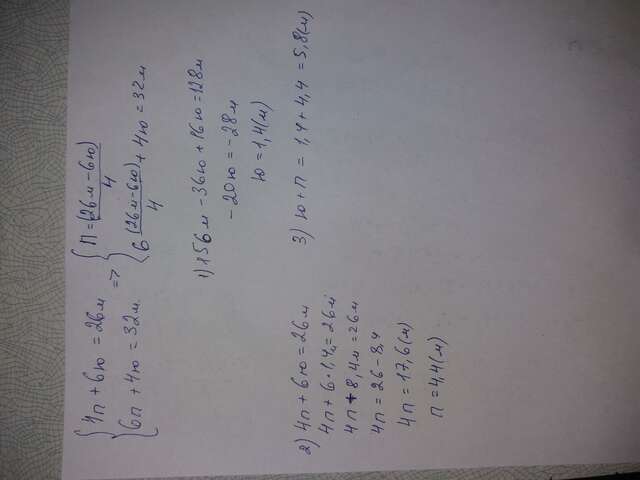 { 4п + 6ю = 26м => { п = (26м - 6ю)/4
{ 6п + 4ю = 32м. { 6 (26м-6ю)/4 + 4ю = 32м
1) 156м - 36ю + 16ю = 128м
-20ю = -28м
ю = 1,4(м)
2) 4п + 6ю = 26м
4п + 6·1,4м = 26м
4п + 8,4м = 26м
4п = 26 - 8,4
4п = 17,6(м)
п = 4,4(м)
3) ю + п = 1,4 + 4,4 = 5,8(м)